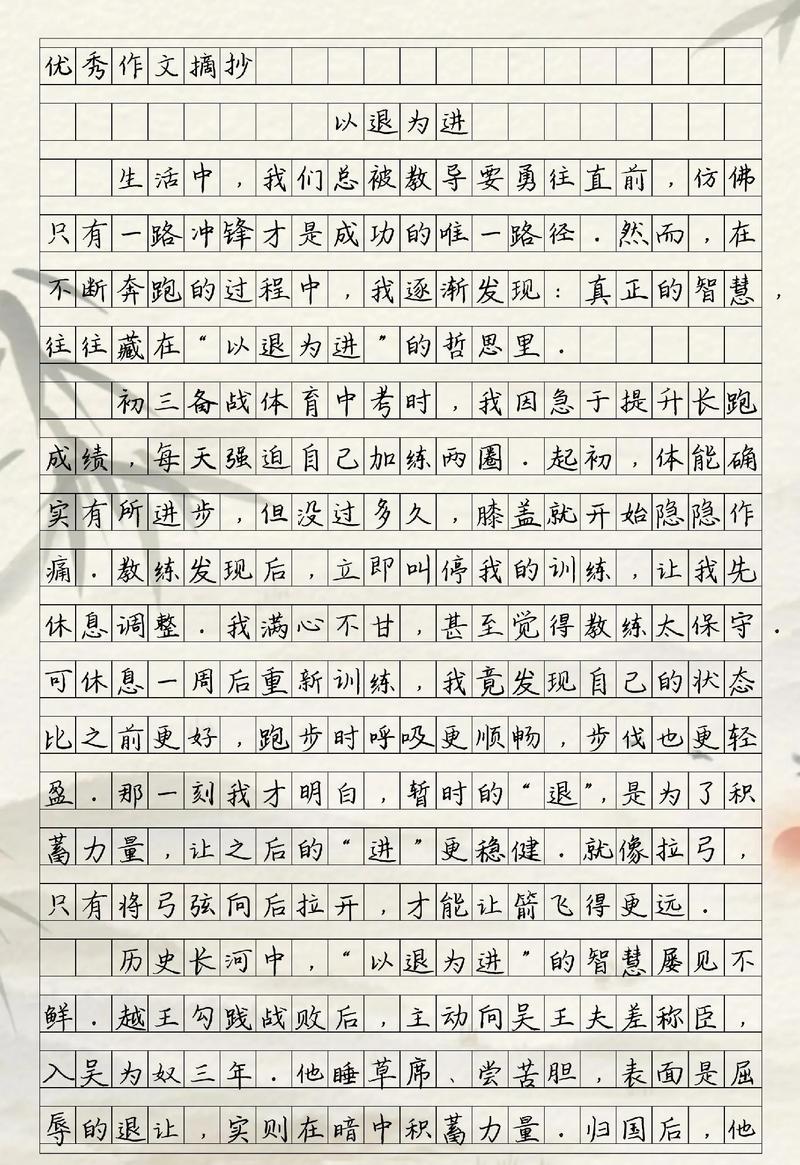 优秀作文摘抄
以退为进
生活中，我们总被教导要勇往直前，仿佛
只有一路冲锋才是成功的唯一路径．然而，在
不断奔跑的过程中，我逐渐发现：真正的智慧，
往往藏在“以退为进”的哲思里．
初三备战体育中考时，我因急于提升长跑
成绩，每天强迫自己加练两圈．起初，体能确
实有所进步，但没过多久，膝盖就开始隐隐作
痛．教练发现后，立即叫停我的训练，让我先
休息调整．我满心不甘，甚至觉得教练太保守．
可休息一周后重新训练，我竟发现自己的状态
比之前更好，跑步时呼吸更顺畅，步伐也更轻
盈．那一刻我才明白，暂时的“退”，是为了积
蓄力量，让之后的“进”更稳健．就像拉弓，
只有将弓弦向后拉开，才能让箭飞得更远．
历史长河中，“以退为进”的智慧屡见不
鲜．越王勾践战败后，主动向吴王夫差称臣，
入吴为奴三年．他睡草席、尝苦胆，表面是屈
辱的退让，实则在暗中积蓄力量．归国后，他